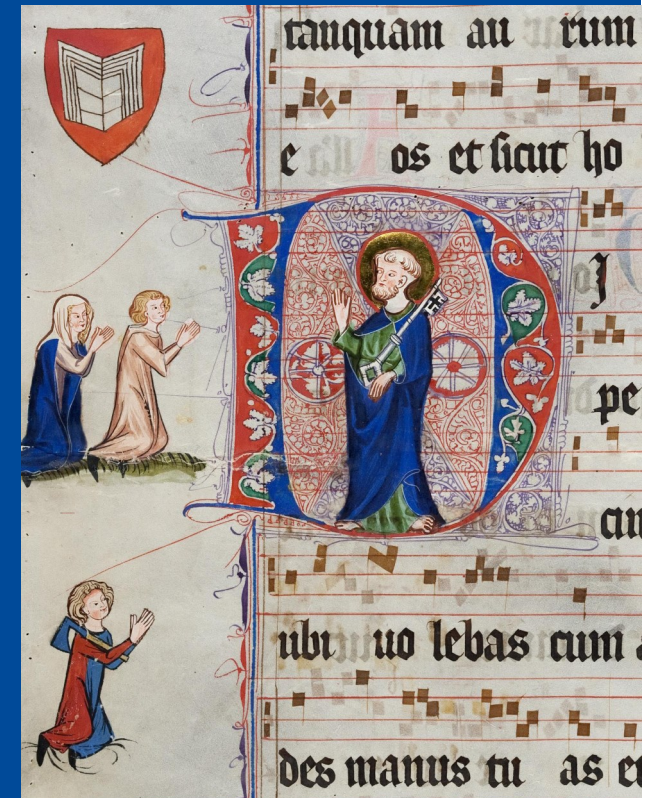 tanquam au rum
e os et sicut ho
D J
pe
cin
ubi uo lebas cum a
des manus tu as et